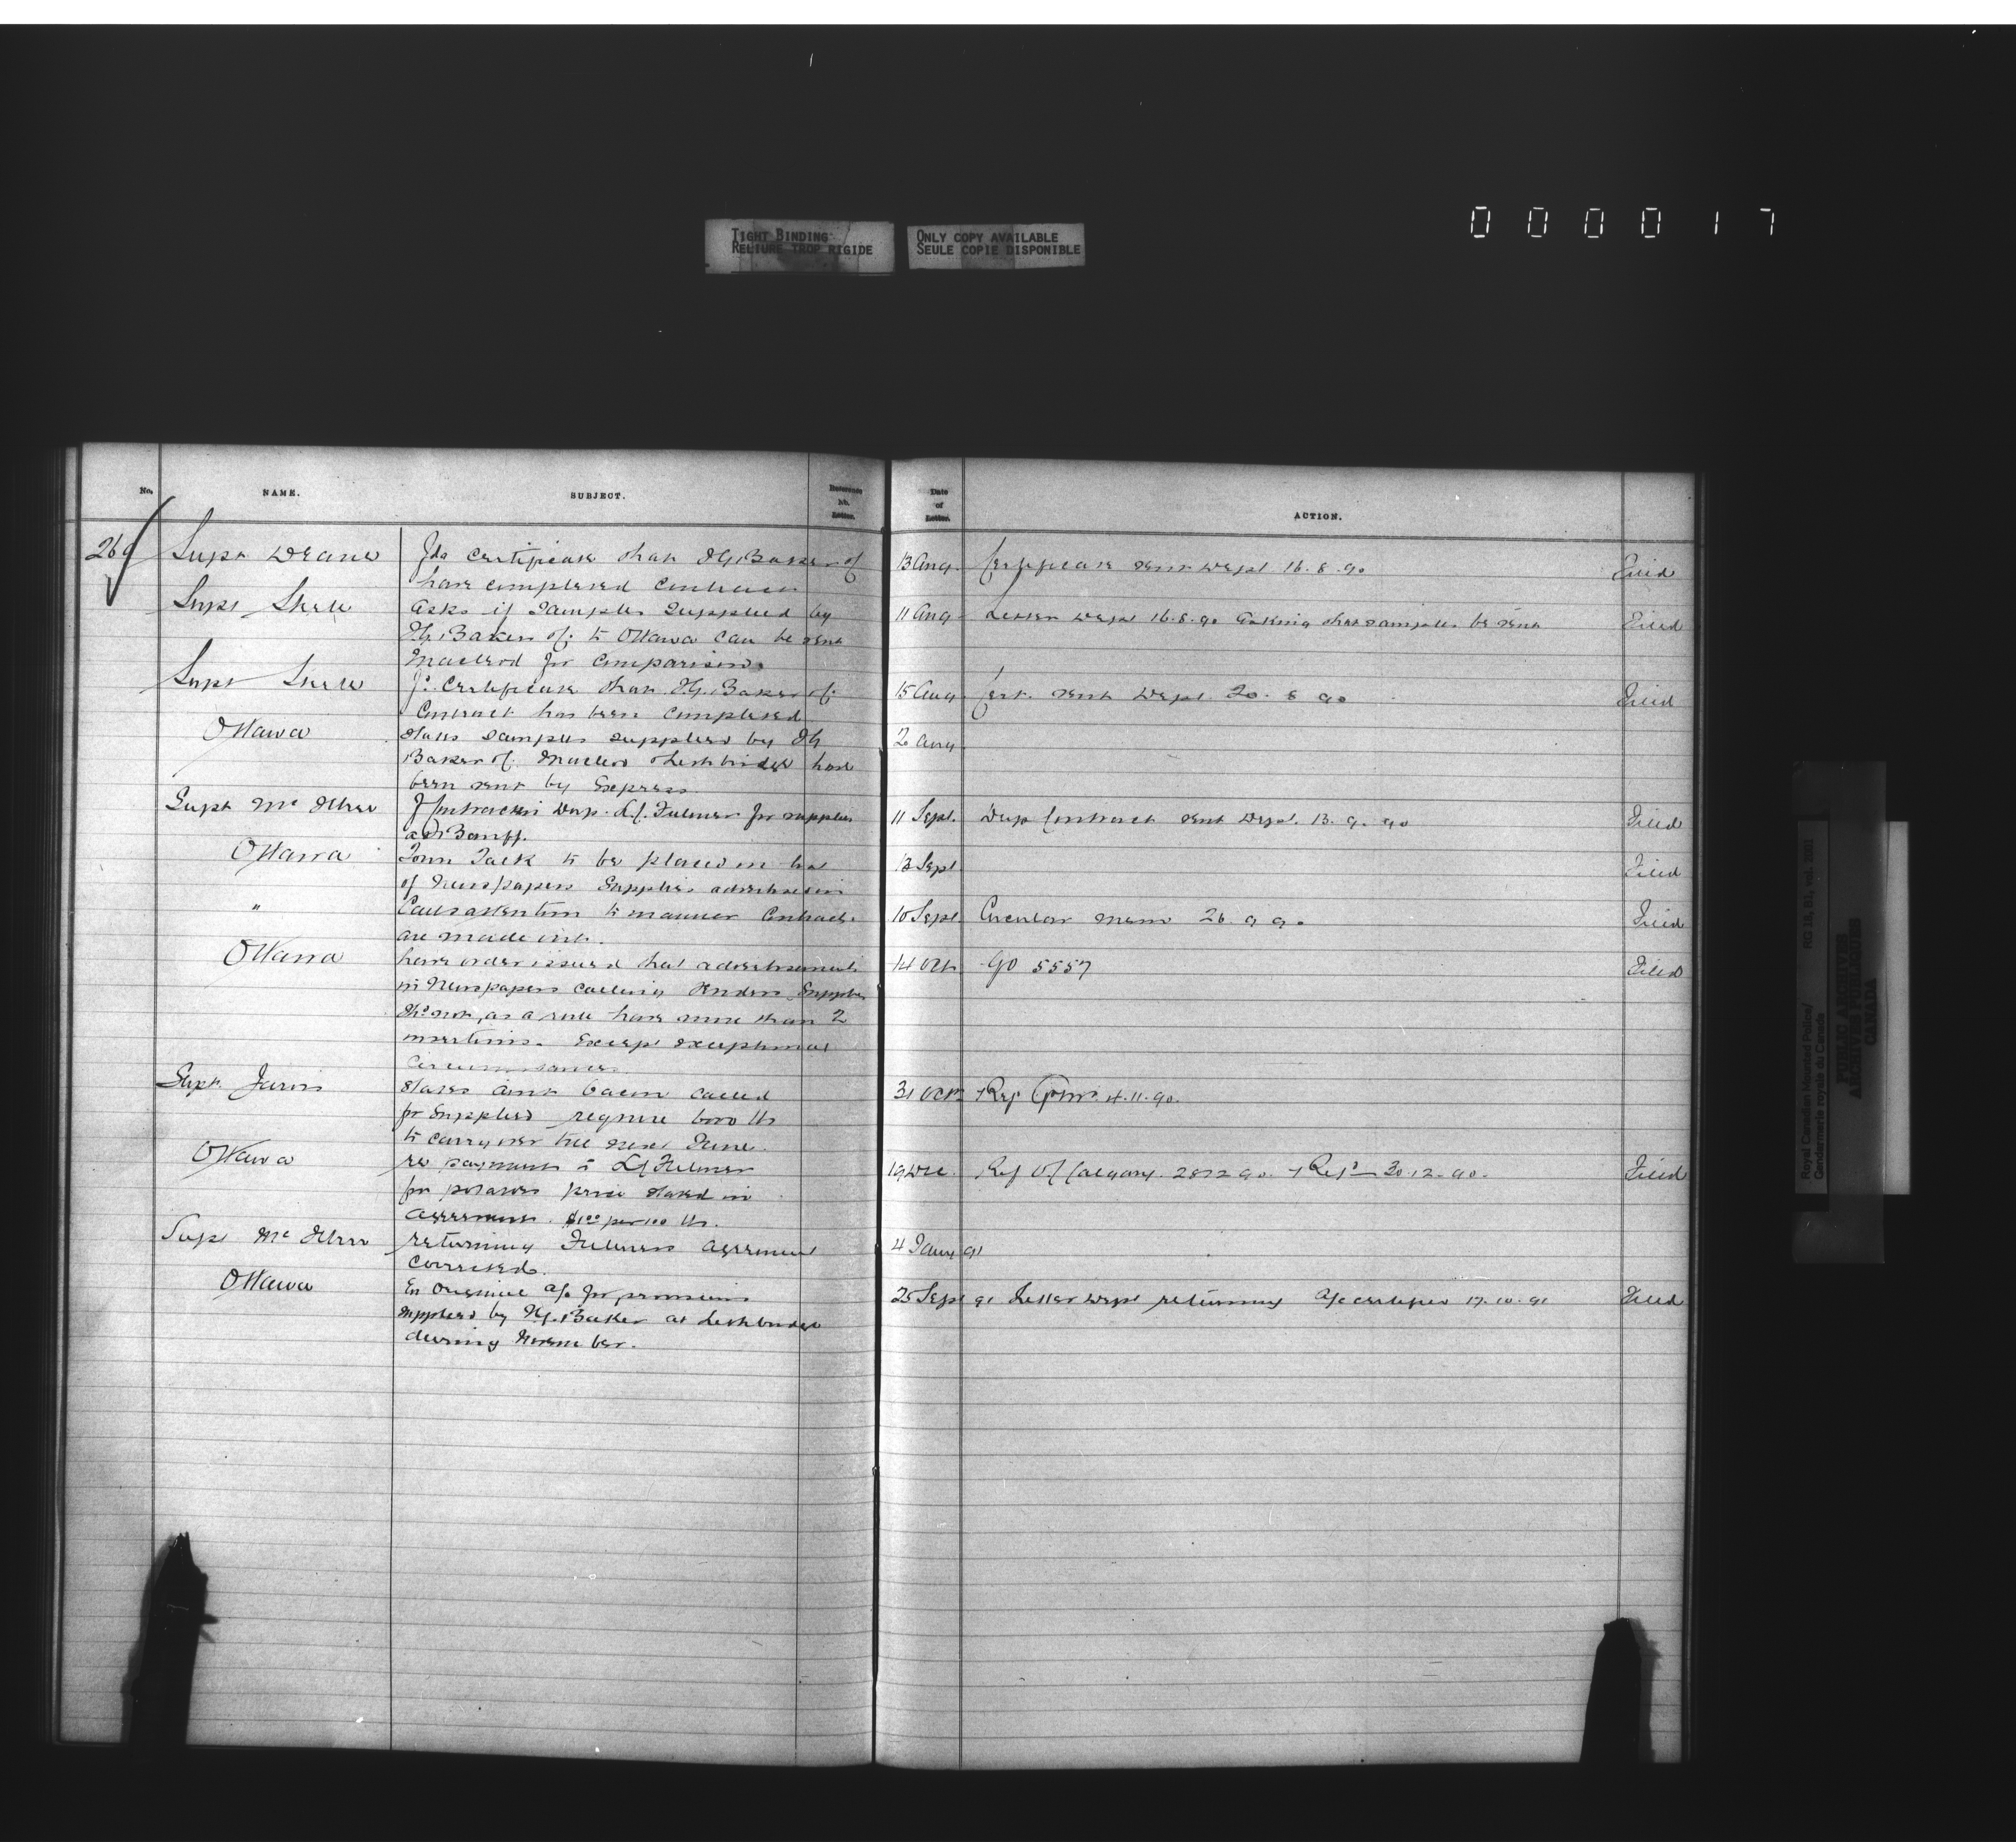 000017
TIGHT BINDING
RELIURE TROP RIGIDE
ONLY COPY AVAILABLE
SEULE COPIE DISPONIBLE
No. NAME. SUBJECT. Reference No. Letter. Date of Letter. ACTION.
269 Supt Deane Fds Certificate that IG Baker of 13 Aug Certificate sent Dept 16.8.90 Filed
have completed contract
Supt Steele asks if samples supplied by 11 Aug Letter Dept 16.8.90 asking that samples be sent Filed
IG. Baker of to Ottawa can be sent
Macleod for comparison.
Supt Steele Certificate that IG. Baker of 15 Aug Cert. sent Dept 20.8 90 Filed
Contract has been completed
Ottawa states samples supplied by IG 2 Aug
Baker of Macleod Lethbridge have
been sent by Express.
Supt Mc Illree Contract in Dup. Fulmer for supplies 11 Sept. Dup Contract sent Dept. 13.9.90 Filed
at Banff.
Ottawa Town Talk to be placed on list 13 Sept Filed
of Newspapers Supplies advertised in
" Calls attention to manner Contracts 10 Sept Circular memo 26.9 90 Filed
are made out.
Ottawa have order issued that advertisements 14 Oct GO 5557 Filed
in Newspapers calling tenders Supplies
not, as a rule have more than 2
insertions. Except exceptional
Circumstances.
Supt Jarvis States amt bacon called 31 Oct 4.11.90.
for supplies require lbs
to carry over till next June.
Ottawa re payment to Fulmer 19 Dec. Calgary. 30.12.90. Filed
for potatoes price stated in
agreement. $1.00 per 100 lbs.
Supt Mc Illree returning Fulmers agreement 4 Jany 91
corrected.
Ottawa En Original a/c for provisions 25 Sept 91 Letter Dept returning a/c certified 17.10.91 Filed
supplied by IG. Baker at Lethbridge
during November.
Royal Canadian Mounted Police/
Gendarmerie royale du Canada
RG 18, B1, vol. 2001
PUBLIC ARCHIVES
ARCHIVES PUBLIQUES
CANADA